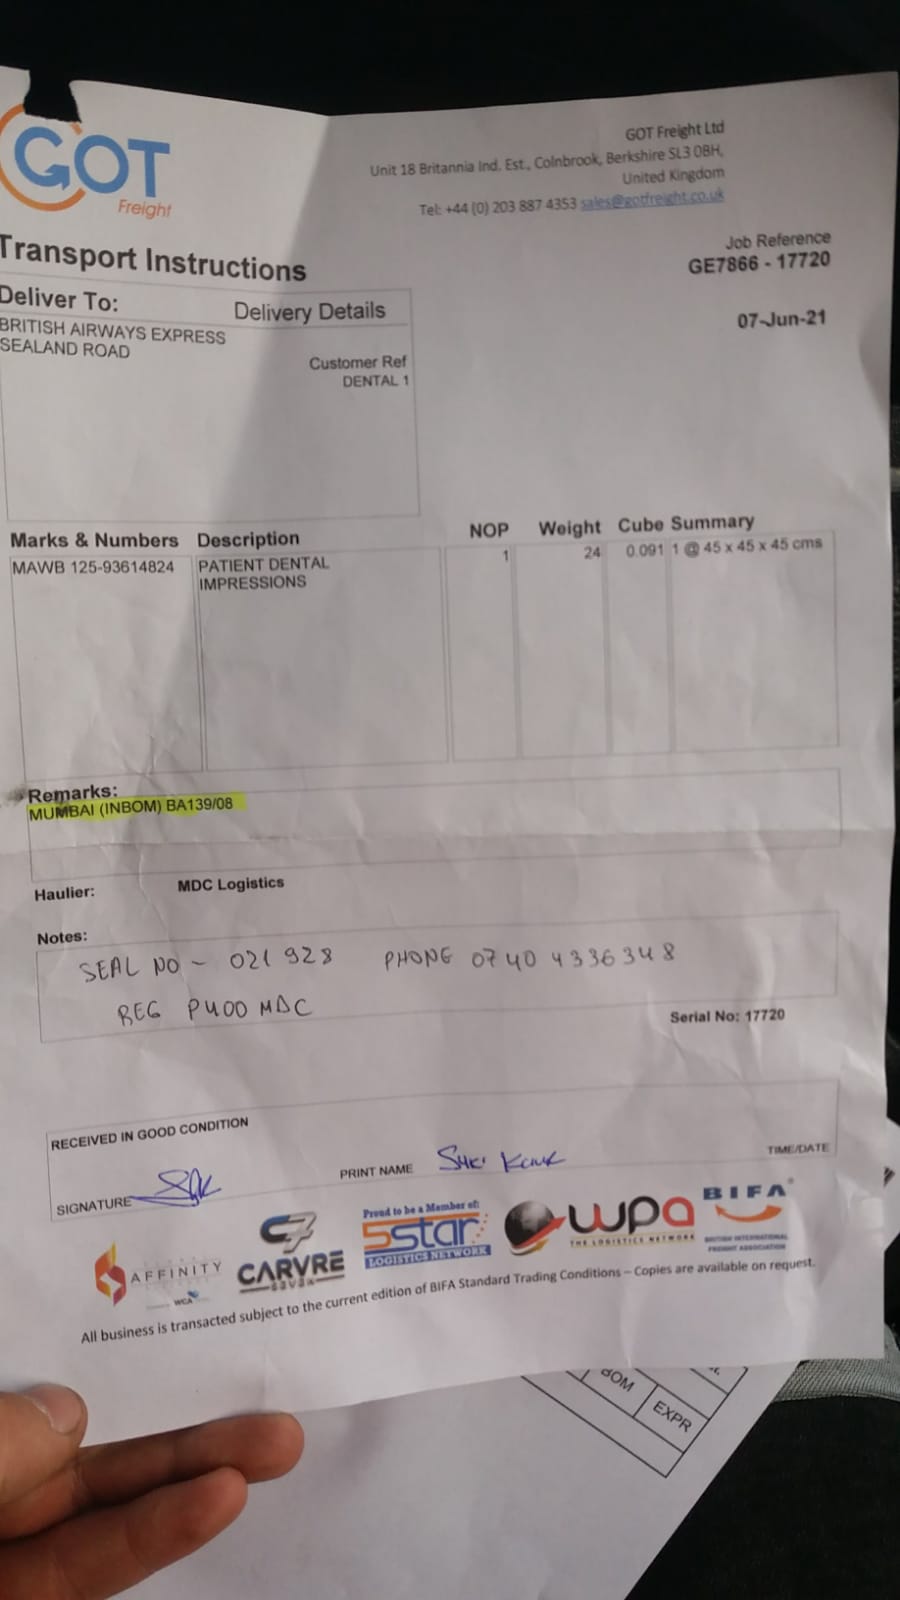 GOT
Freight
GOT Freight Ltd
Unit 18 Britannia Ind. Est., Colnbrook, Berkshire SL3 0BH,
United Kingdom
Tel: +44 (0) 203 887 4353 sales@gotfreight.co.uk
Transport Instructions
Job Reference
GE7866 - 17720
07-Jun-21
Deliver To:
Delivery Details
BRITISH AIRWAYS EXPRESS
SEALAND ROAD
Customer Ref
DENTAL 1
Marks & Numbers Description NOP Weight Cube Summary
MAWB 125-93614824 PATIENT DENTAL 1 24 0.091 1 @ 45 x 45 x 45 cms
IMPRESSIONS
Remarks:
MUMBAI (INBOM) BA139/08
Haulier: MDC Logistics
Notes:
SEAL NO - 021928 PHONE 0740 4336348
REG P400 MDC
Serial No: 17720
RECEIVED IN GOOD CONDITION
SIGNATURE PRINT NAME TIME/DATE
AFFINITY
WCA
CARVRE
Proud to be a Member of:
5star
LOGISTICS NETWORK
wpa
THE LOGISTICS NETWORK
BIFA
BRITISH INTERNATIONAL
FREIGHT ASSOCIATION
All business is transacted subject to the current edition of BIFA Standard Trading Conditions – Copies are available on request.
BOM
EXPR